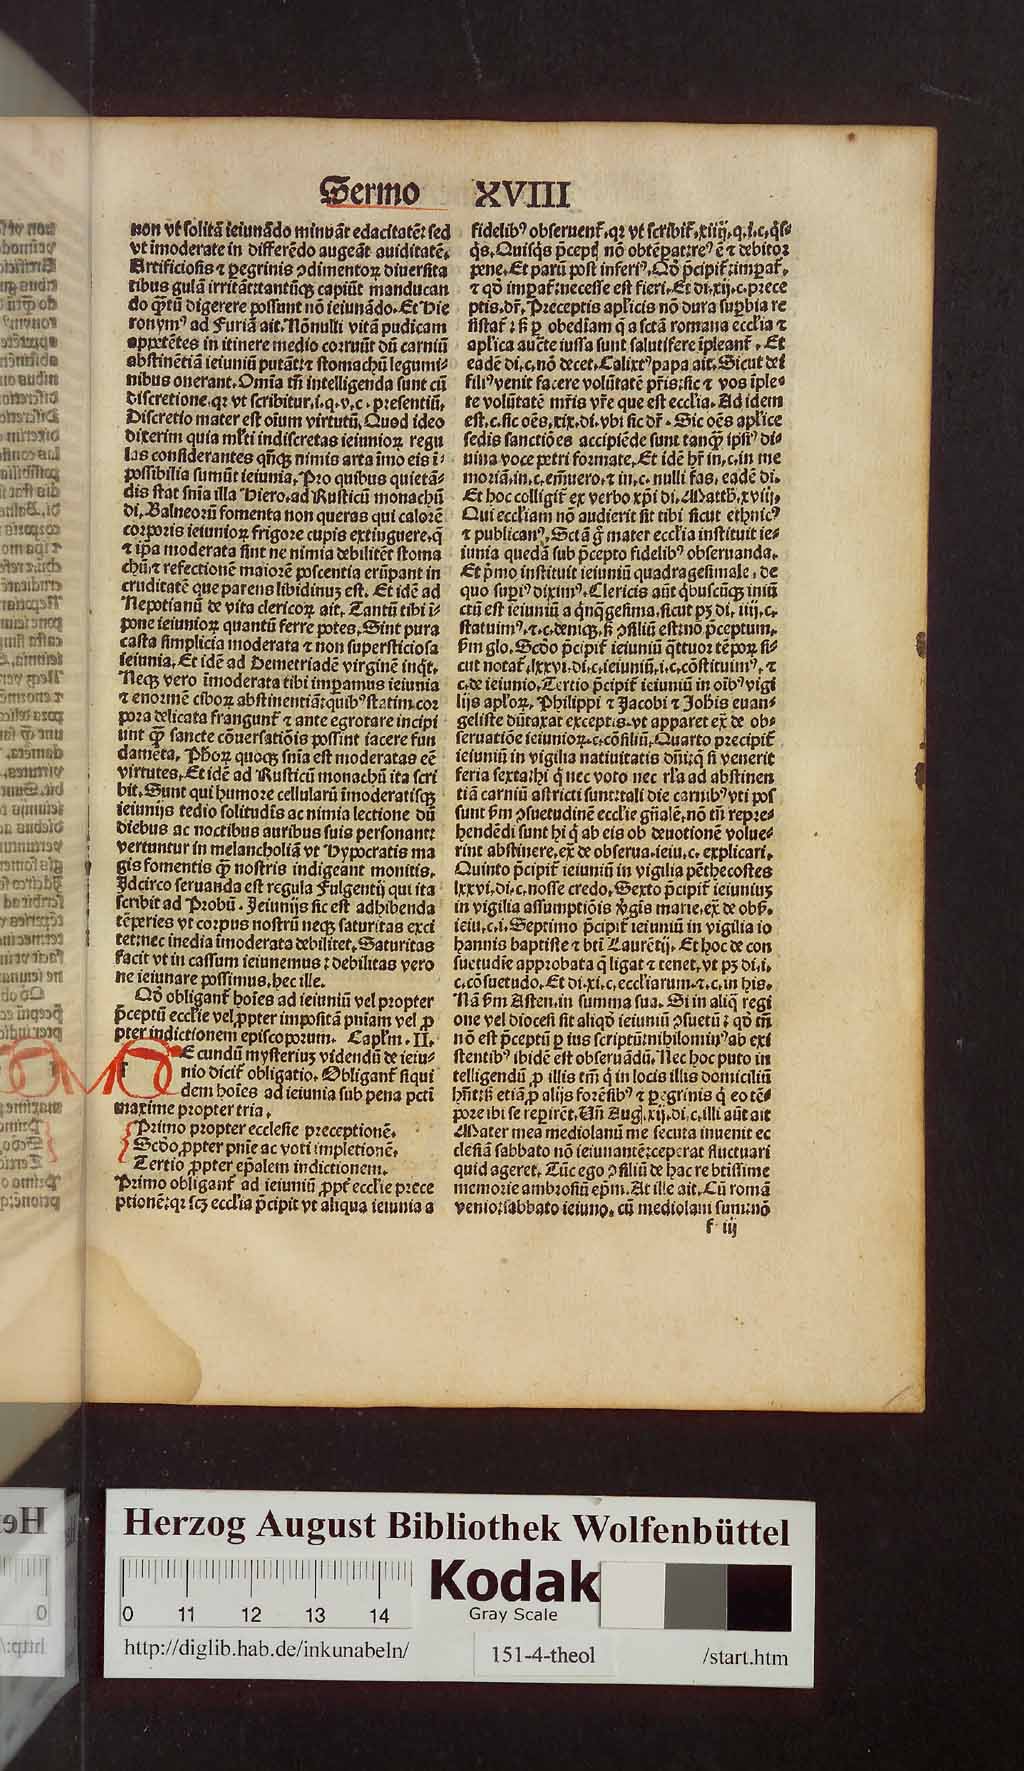 Sermo XVIII
non vt solitā ieiunādo minuāt edacitatē: sed
vt īmoderate in differēdo augeāt auiditatē.
Artificiosis ⁊ ꝑegrinis ↄdimentoꝝ diuersita
tibus gulā irritāt: tantūqꝫ capiūt manducan
do qꝫtū digerere possunt nō ieiunādo. Et Hie
ronymꝰ ad Furiā ait. Nōnulli vitā pudicam
appetētes in itinere medio corruūt dū carniū
abstinētiā ieiuniū putāt: ⁊ stomachū legumi⸗
nibus onerant. Omīa tñ intelligenda sunt cū
discretione. qꝛ vt scribitur. i. q. v. c. presentiū.
Discretio mater est oīum virtutū. Quod ideo
dixerim quia mlti indiscretas ieiunioꝝ regu
las considerantes qñqꝫ nimis arta īmo eis ī⸗
possibilia sumūt ieiunia. Pro quibus quietā⸗
dis stat snīa illa Hiero. ad Rusticū monachū
di. Balneorū fomenta non queras qui calorē
corporis ieiunioꝝ frigore cupis extinguere. q̄
⁊ ipa moderata sint ne nimia debilitēt stoma
chū: ⁊ refectionē maiorē poscentia erūpant in
cruditatē que parens libidinuꝫ est. Et idē ad
Nepotianū de vita clericoꝝ ait. Tantū tibi ī⸗
pone ieiunioꝝ quantū ferre potes. Sint pura
casta simplicia moderata ⁊ non superstíciosa
ieiunia. Et idē ad Demetriadē virginē inqt.
Neqꝫ vero īmoderata tibi imꝑamus ieiunia
⁊ enormē ciboꝝ abstinentiā: quibꝰ statim cor
pora delicata frangunt᷑ ⁊ ante egrotare incipi
unt qꝫ sancte cōuersatiōis possint iacere fun
damēta. Phoꝝ quoqꝫ snīa est moderatas eē
virtutes. Et idē ad Rusticū monachū ita scri
bit. Sunt qui humore cellularū īmoderatisqꝫ
ieiunijs tedio solitudīs ac nimia lectione dū
diebus ac noctibus auribus suis personant:
vertuntur in melancholiā vt Hypocratis ma
gis fomentis qꝫ nostris indigeant monitis.
Idcirco seruanda est regula Fulgentij qui ita
scribit ad Probū. Ieiunijs sic est adhibenda
tēperies vt corpus nostrū neqꝫ saturitas exci
tet: nec inedia īmoderata debilitet. Saturitas
facit vt in cassum ieiunemus: debilitas vero
ne ieiunare possimus. hec ille.
Qđ obligant᷑ hoīes ad ieiuniū vel propter
p̄ceptū ecclīe vel ꝓpter impositā pniam vel ꝓ
pter indictionem episcoporum. Caplm. II.
Ecundū mysteriuꝫ videndū de ieiu⸗
nio dicit᷑ obligatio. Obligant᷑ siqui
dem hoīes ad ieiunia sub pena pcti
maxime propter tria.
Primo propter ecclesie preceptionē.
Scđo ꝓpter pnīe ac voti impletionē.
Tertio ꝓpter epalem indictionem.
Primo obligant᷑ ad ieiuniū ꝓpt᷑ ecclīe prece
ptionē: qꝛ scꝫ ecclīa p̄cipit vt aliqua ieiunia a
fidelibꝰ obseruent᷑. qꝛ vt scribit᷑. xiiij. q. i. c. qs⸗
qs. Quisqs p̄ceptꝭ nō obtēꝑat: reꝰ ē ⁊ debitor
pene. Et parū post inferiꝰ. Qđ p̄cipit᷑: imꝑat᷑.
⁊ qđ imꝑat᷑: necesse est fieri. Et di. xij. c. prece
ptis. dr̄. Preceptis aplicis nō dura suꝑbia re
sistat᷑: sꝫ ꝑ obediam q̄ a scta romana ecclīa ⁊
aplica aucte iussa sunt salutifere īpleant᷑. Et
eadē di. c. nō decet. Calixtꝰ papa ait. Sicut dei
filiꝰ venit facere volūtatē pr̄is: sic ⁊ vos īple⸗
te volūtatē mr̄is vr̄e que est ecclīa. Ad idem
est. c. sic oēs. xix. di. vbi sic dr̄. Sic oēs aplīce
sedis sanctiōes accipiēde sunt tanqꝫ ipsiꝰ di⸗
uina voce petri formate. Et idē hr̄ in. c. in me
moriā. in. c. enīuero. ⁊ in. c. nulli fas. eadē di.
Et hoc colligit᷑ ex verbo xpi di. Matth. xviij.
Qui ecclīam nō audierit sit tibi sicut ethnicꝰ
⁊ publicanꝰ. Sctā g̊ mater ecclīa instituit ie⸗
iunia quedā sub p̄cepto fidelibꝰ obseruanda.
Et p̄mo instituit ieiuniū quadragesimale. de
quo supiꝰ diximꝰ. Clericis aūt q̄buscūqꝫ iniū
ctū est ieiuniū a qnq̄gesima. sicut pꝫ di. iiij. c.
statuimꝰ. ⁊. c. deniqꝫ. sꝫ ↄsiliū est: nō p̄ceptum.
ẜm glo. Scđo p̄cipit᷑ ieiuniū q̄ttuor tēpoꝝ si⸗
cut notat᷑. lxxvi. di. c. ieiuniū. i. c. cōstituimꝰ. ⁊
c. de ieiunio. Tertio p̄cipit᷑ ieiuniū in oībꝰ vigi
lijs aploꝝ. Philippi ⁊ Jacobi ⁊ Johis euan⸗
geliste dūtaxat exceptis. vt apparet ex̄ de ob⸗
seruatiōe ieiunioꝝ. c. cōsiliū. Quarto precipit᷑
ieiuniū in vigilia natiuitatis dñi: q̄ si venerit
feria sexta: hi q̄ nec voto nec rl̄a ad abstinen
tiā carniū astricti sunt: tali die carnibꝰ vti pos
sunt ẜm ↄsuetudinē ecclīe gn̄alē. nō tñ repre⸗
hendēdi sunt hi q̄ ab eis ob deuotionē volue⸗
rint abstinere. ex̄ de obserua. ieiu. c. explicari.
Quinto p̄cipit᷑ ieiuniū in vigilia pēthecostes
lxxvi. di. c. nosse credo. Sexto p̄cipit᷑ ieiuniuꝫ
in vigilia assumptiōis v̄gis marie. ex̄ de obẜ.
ieiu. c. i. Septimo p̄cipit᷑ ieiuniū in vigilia io
hannis baptiste ⁊ bti Laurētij. Et hoc de con
suetudīe approbata q̄ ligat ⁊ tenet. vt pꝫ di. i.
c. cōsuetudo. Et di. xi. c. ecclīarum. ⁊. c. in his.
Nā ẜm Asten. in summa sua. Si in aliq̄ regi
one vel diocesi sit aliqđ ieiuniū ↄsuetū: qđ tñ
nō est p̄ceptū ꝑ ius scriptū: nihilominꝰ ab exi
stentibꝰ ibidē est obseruādū. Nec hoc puto in
telligendū ꝓ illis tm̄ q̄ in locis illis domiciliū
hn̄t: sꝫ etiā ꝓ alijs forēsibꝰ ⁊ ꝑegrinis q̄ eo tē⸗
pore ibi se reꝑirēt. Un̄ Augꝰ. xij. di. c. illi aūt ait
Mater mea mediolanū me secuta inuenit ec
clesiā sabbato nō ieiunantē: ceperat fluctuari
quid ageret. Tūc ego ↄsiliū de hac re btissime
memorie ambrosiū epm. At ille ait. Cū romā
venio: sabbato ieiuno. cū mediolani sum: nō
f iij
Herzog August Bibliothek Wolfenbüttel
0 11 12 13 14
Kodak
Gray Scale
http://diglib.hab.de/inkunabeln/ 151-4-theol /start.htm